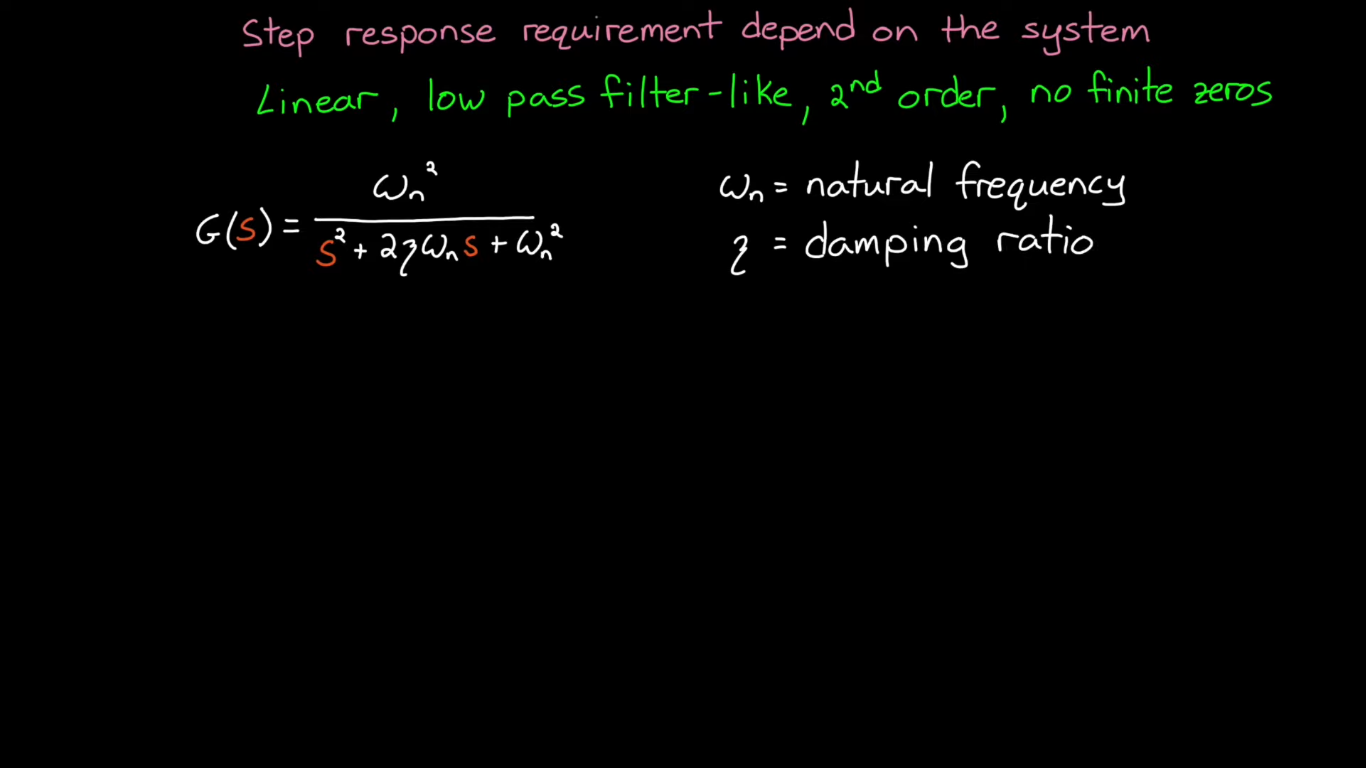 Step response requirement depend on the system
Linear, low pass filter-like, 2nd order, no finite zeros
G(s) = ωn² / (s² + 2ζωns + ωn²)
ωn = natural frequency
ζ = damping ratio